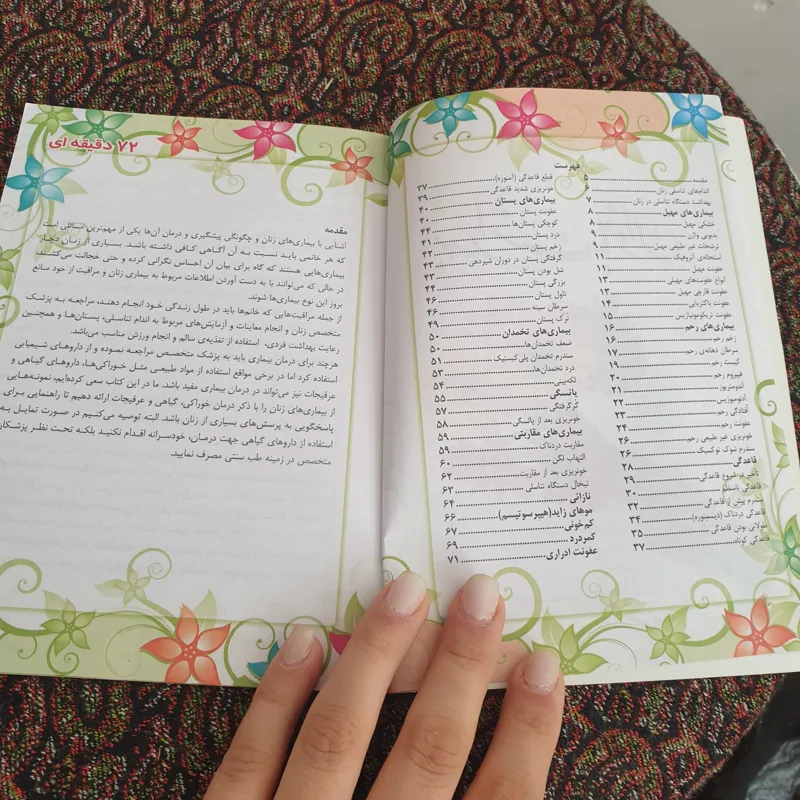 فهرست
مقدمه ۵
اندام‌های تناسلی زنان ۶
بهداشت دستگاه تناسلی در زنان ۷
بیماری‌های مهبل ۸
خشکی مهبل ۸
بدبویی واژن ۹
ترشحات غیر طبیعی مهبل ۹
استحاله‌ی آتروفیک ۱۱
عفونت مهبل ۱۱
انواع عفونت‌های مهبلی ۱۳
عفونت قارچی مهبل ۱۳
عفونت باکتریایی ۱۴
عفونت تریکومونیازیس ۱۵
بیماری‌های رحم ۱۶
زخم رحم ۱۶
سرطان دهانه‌ی رحم ۱۷
کیست رحم ۱۹
فیبروم رحم ۲۰
آندومتریوز ۲۱
آدنومیوزیس ۲۲
افتادگی رحم ۲۳
عفونت رحم ۲۴
خونریزی غیر طبیعی رحم ۲۶
سندرم شوک توکسیک ۲۶
قاعدگی ۲۸
تأخیر در شروع قاعدگی ۲۹
قاعدگی نامنظم ۳۰
سندرم پیش از قاعدگی ۳۲
قاعدگی دردناک (دیسمنوره) ۳۴
طولانی بودن قاعدگی ۳۵
قاعدگی کوتاه ۳۷
قطع قاعدگی (آمنوره) ۳۷
خونریزی شدید قاعدگی ۳۹
بیماری‌های پستان ۴۰
عفونت پستان ۴۰
کوچکی پستان‌ها ۴۴
درد پستان ۴۱
زخم پستان ۴۲
گرفتگی پستان در دوران شیردهی ۴۳
شل بودن پستان ۴۳
بزرگی پستان ۴۴
تاول پستان ۴۶
سرطان سینه ۴۶
ترک پستان ۴۹
بیماری‌های تخمدان ۵۰
ضعف تخمدان‌ها ۵۰
سندرم تخمدان پلی‌کیستیک ۵۱
درد تخمدان‌ها ۵۳
لکه‌بینی ۵۴
یائسگی ۵۵
گُرگرفتگی ۵۷
خونریزی بعد از یائسگی ۵۸
بیماری‌های مقاربتی ۵۹
مقاربت دردناک ۵۹
التهاب لگن ۶۰
خونریزی بعد از مقاربت ۶۲
تبخال دستگاه تناسلی ۶۳
نازائی ۶۴
موهای زاید(هیپرسوتیسم) ۶۶
کم‌خونی ۶۷
کمردرد ۶۹
عفونت ادراری ۷۱
۷۲ دقیقه ای
مقدمه
آشنایی با بیماری‌های زنان و چگونگی پیشگیری و درمان آن‌ها یکی از مهم‌ترین مسائلی است
که هر خانمی باید نسبت به آن آگاهی کافی داشته باشد. بسیاری از زنان دچار
بیماری‌هایی هستند که گاه برای بیان آن احساس نگرانی کرده و حتی خجالت می‌کشند،
در حالی که می‌توانند با به دست آوردن اطلاعات مربوط به بیماری زنان و مراقبت از خود مانع
بروز این نوع بیماری‌ها شوند.
از جمله مراقبت‌هایی که خانم‌ها باید در طول زندگی خود انجام دهند، مراجعه به پزشک
متخصص زنان و انجام معاینات و آزمایش‌های مربوط به اندام تناسلی، پستان‌ها و همچنین
رعایت بهداشت فردی، استفاده از تغذیه‌ی سالم و انجام ورزش مناسب می‌باشد.
هرچند برای درمان بیماری باید به پزشک متخصص مراجعه نموده و از داروهای شیمیایی
استفاده کرد اما در برخی مواقع استفاده از مواد طبیعی مثل خوراکی‌ها، داروهای گیاهی و
عرقیجات نیز می‌تواند در درمان بیماری مفید باشد. ما در این کتاب سعی کرده‌ایم، نمونه‌هایی
از بیماری‌های زنان را با ذکر درمان خوراکی، گیاهی و عرقیجات ارائه دهیم تا راهنمایی برای
پاسخگویی به پرسش‌های بسیاری از زنان باشد. البته توصیه می‌کنیم در صورت تمایل به
استفاده از داروهای گیاهی جهت درمان، خودسرانه اقدام نکنید بلکه تحت نظر پزشکان
متخصص در زمینه طب سنتی مصرف نمایید.